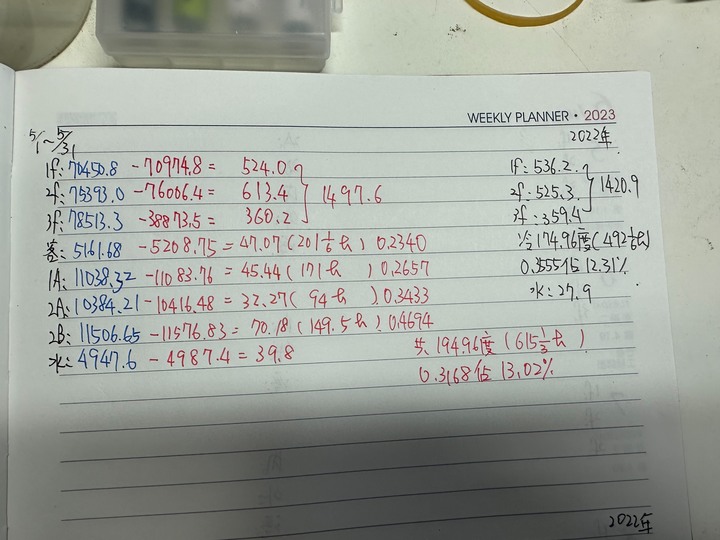 WEEKLY PLANNER • 2023
5/1~5/31
2022年
1f: 70450.8 - 70974.8 = 524.0
2f: 75393.0 - 76006.4 = 613.4
3f: 78513.3 - 38873.5 = 360.2
1497.6
客: 5161.68 - 5208.75 = 47.07 (201 1/6 h) 0.2340
1A: 11038.32 - 11083.76 = 45.44 (171 h) 0.2657
2A: 10384.21 - 10416.48 = 32.27 (94 h) 0.3433
2B: 11506.65 - 11576.83 = 70.18 (149.5 h) 0.4694
水: 4947.6 - 4987.4 = 39.8
共 194.96度 (615 1/3 h)
0.3168 佔 13.02%
1f: 536.2
2f: 525.3
3f: 359.4
1420.9
冷 174.96度 (492 1/6 h)
0.3555 佔 12.31%
水: 27.9
2022年